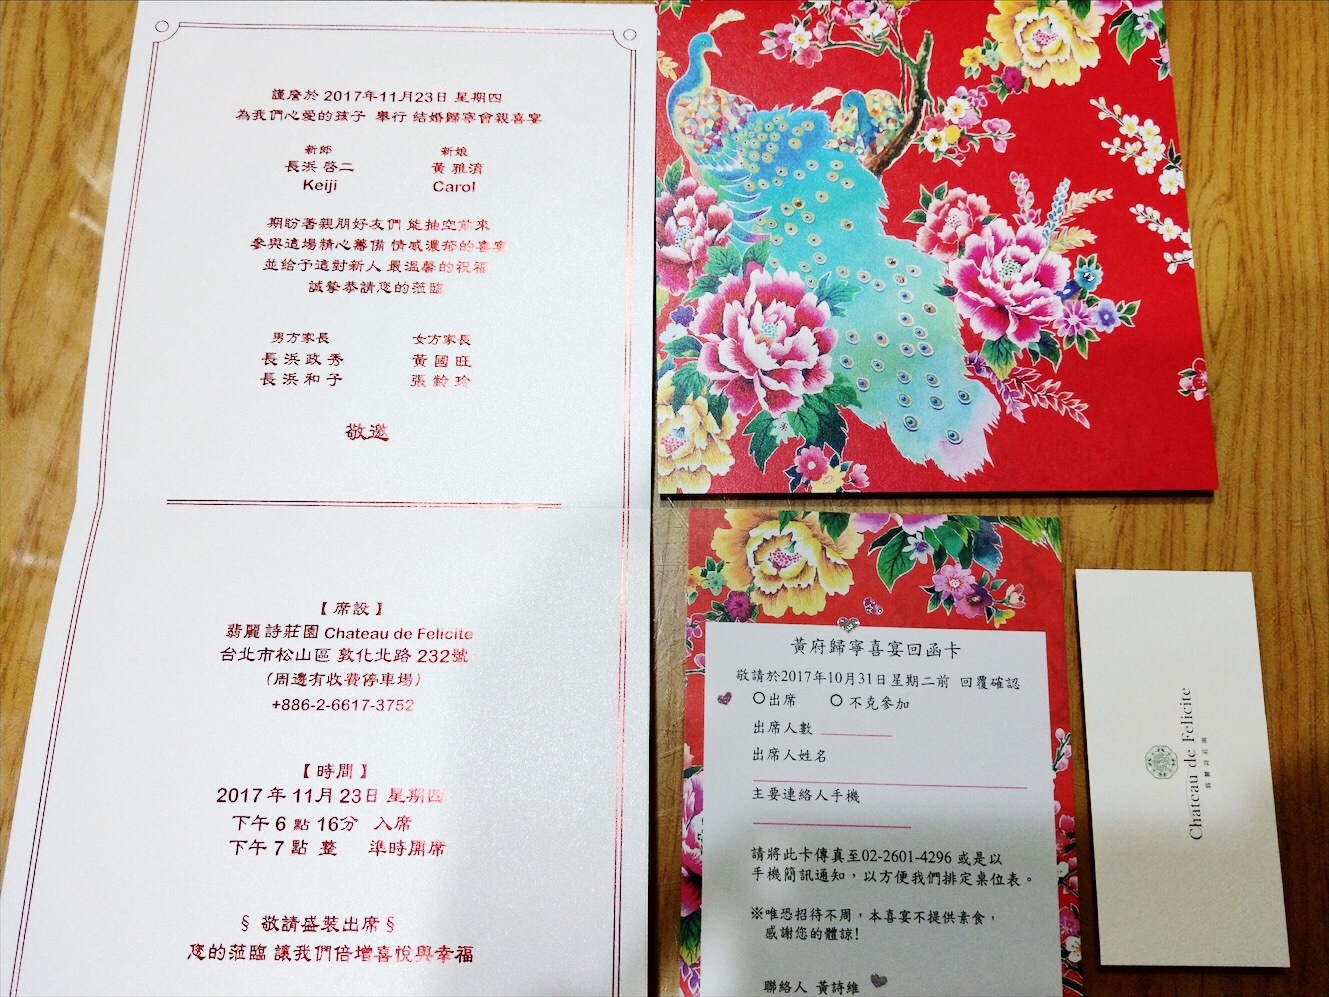 謹詹於 2017年11月23日 星期四
為我們心愛的孩子 舉行 結婚歸寧會親喜宴
新郎 新娘
長浜 啓二 黃 雅淯
Keiji Carol
期盼著親朋好友們 能抽空前來
參與這場精心籌備 情感濃郁的喜宴
並給予這對新人 最溫馨的祝福
誠摯恭請您的蒞臨
男方家長 女方家長
長 浜 政 秀 黃 國 旺
長 浜 和 子 張 齡 玲
敬邀
【 席設 】
翡麗詩莊園 Chateau de Felicite
台北市松山區 敦化北路 232號
(周邊有收費停車場)
+886-2-6617-3752
【 時間 】
2017 年 11月 23日 星期四
下午 6 點 16分 入席
下午 7 點 整 準時開席
§ 敬請盛裝出席 §
您的蒞臨 讓我們倍增喜悅與幸福
黃府歸寧喜宴回函卡
敬請於2017年10月31日星期二前 回覆確認
○出席 ○ 不克參加
出席人數
出席人姓名
主要連絡人手機
請將此卡傳真至02-2601-4296 或是以
手機簡訊通知，以方便我們排定桌位表。
※唯恐招待不周，本喜宴不提供素食，
感謝您的體諒!
聯絡人 黃詩維
Chateau de Felicite
翡麗詩莊園